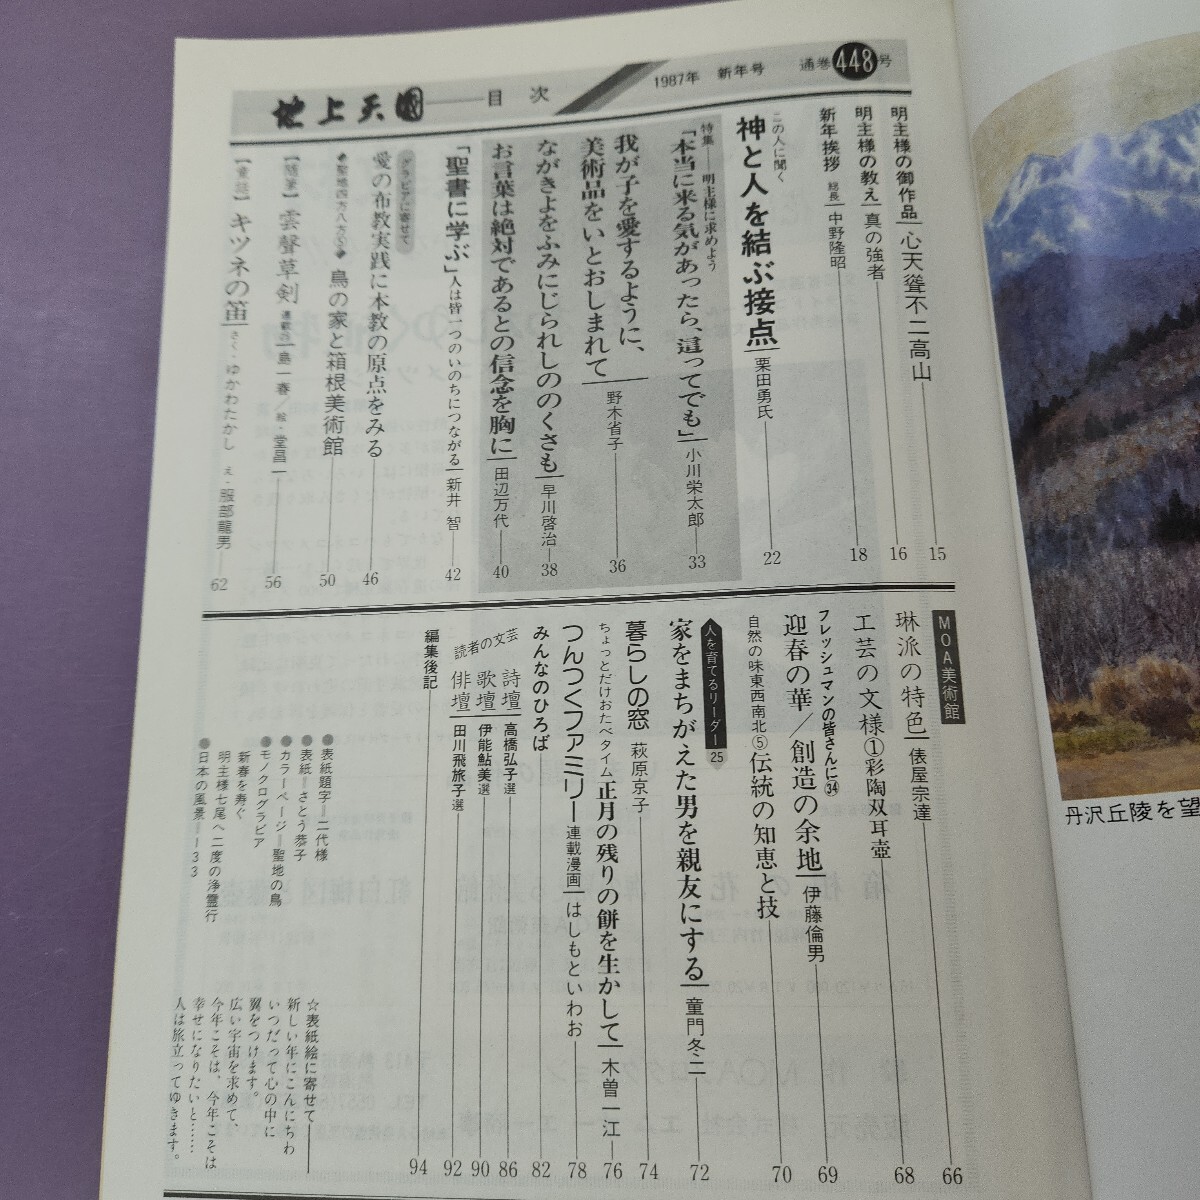 地上天國――目次
1987年　新年号　通巻448号
明主様の御作品―心天聳不二高山――15
明主様の教え―真の強者――16
新年挨拶　総長―中野隆昭――18
この人に聞く
神と人を結ぶ接点―栗田勇氏――22
特集――明主様に求めよう
「本当に来る気があったら、這ってでも」―小川栄太郎――33
我が子を愛するように、
美術品をいとおしまれて―野木省子――36
ながきよをふみにじられしののくさも―早川啓治――38
お言葉は絶対であるとの信念を胸に―田辺万代――40
「聖書に学ぶ」人は皆一つのいのちにつながる―新井　智――42
グラビアに寄せて
愛の布教実践に本教の原点をみる――46
◆聖地四方八方⑤◆　鳥の家と箱根美術館――50
【随筆】　雲聲草剣　連載―島一春／絵・堂昌一――56
【童話】　キツネの笛―さく・ゆかわたかし　え・服部龍男――62
MOA美術館
琳派の特色―俵屋宗達――66
工芸の文様①彩陶双耳壺――68
フレッシュマンの皆さんに㉞
迎春の華／創造の余地―伊藤倫男――69
自然の味東西南北⑤伝統の知恵と技――70
人を育てるリーダー25
家をまちがえた男を親友にする―童門冬二――72
暮らしの窓　萩原京子――74
ちょっとだけおたべタイム　正月の残りの餅を生かして―木曽一江――76
つんつくファミリー―連載漫画―はしもといわお――78
みんなのひろば――82
読者の文芸
詩壇―高橋弘子選――86
歌壇―伊能鮎美選――90
俳壇―田川飛旅子選――92
編集後記――94
●表紙題字―二代様
●表紙―さとう恭子
●カラーページ―聖地の鳥
●モノクログラビア
新春を寿ぐ
明主様七尾へ二度の浄霊行
●日本の風景―33
☆表紙絵に寄せて
新しい年にこんにちわ
いつだって心の中に
翼をつけます。
広い宇宙を求めて、
今年こそは、今年こそは
幸せになりたいと……
人は旅立ってゆきます。
丹沢丘陵を望